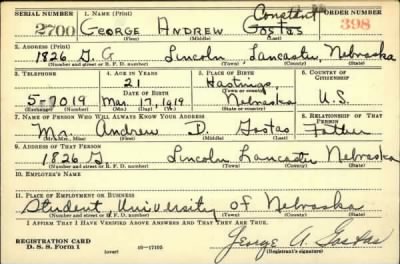 SERIAL NUMBER 1. NAME (Print) ORDER NUMBER
Constant
2700 GEORGE ANDREW Gostas 398
(First) (Middle) (Last)
2. ADDRESS (Print)
1826 G. Lincoln, Lancaster, Nebraska
(Number and street or R. F. D. number) (Town) (County) (State)
3. TELEPHONE 4. AGE IN YEARS 5. PLACE OF BIRTH 6. COUNTRY OF CITIZENSHIP
21 Hastings,
DATE OF BIRTH (Town or county)
5-7019 Mar. 17, 1919 Nebraska U.S.
(Exchange) (Number) (Mo.) (Day) (Yr.) (State or country)
7. NAME OF PERSON WHO WILL ALWAYS KNOW YOUR ADDRESS 8. RELATIONSHIP OF THAT PERSON
Mr. Andrew D. Gostas Father
(Mr., Mrs., Miss) (First) (Middle) (Last)
9. ADDRESS OF THAT PERSON
1826 G Lincoln Lancaster Nebraska
(Number and street or R. F. D. number) (Town) (County) (State)
10. EMPLOYER'S NAME
11. PLACE OF EMPLOYMENT OR BUSINESS
Student, University of Nebraska
(Number and street or R. F. D. number) (Town) (County) (State)
I AFFIRM THAT I HAVE VERIFIED ABOVE ANSWERS AND THAT THEY ARE TRUE.
REGISTRATION CARD George A. Gostas
D. S. S. FORM 1 (over) 16-17105 (Registrant's signature)